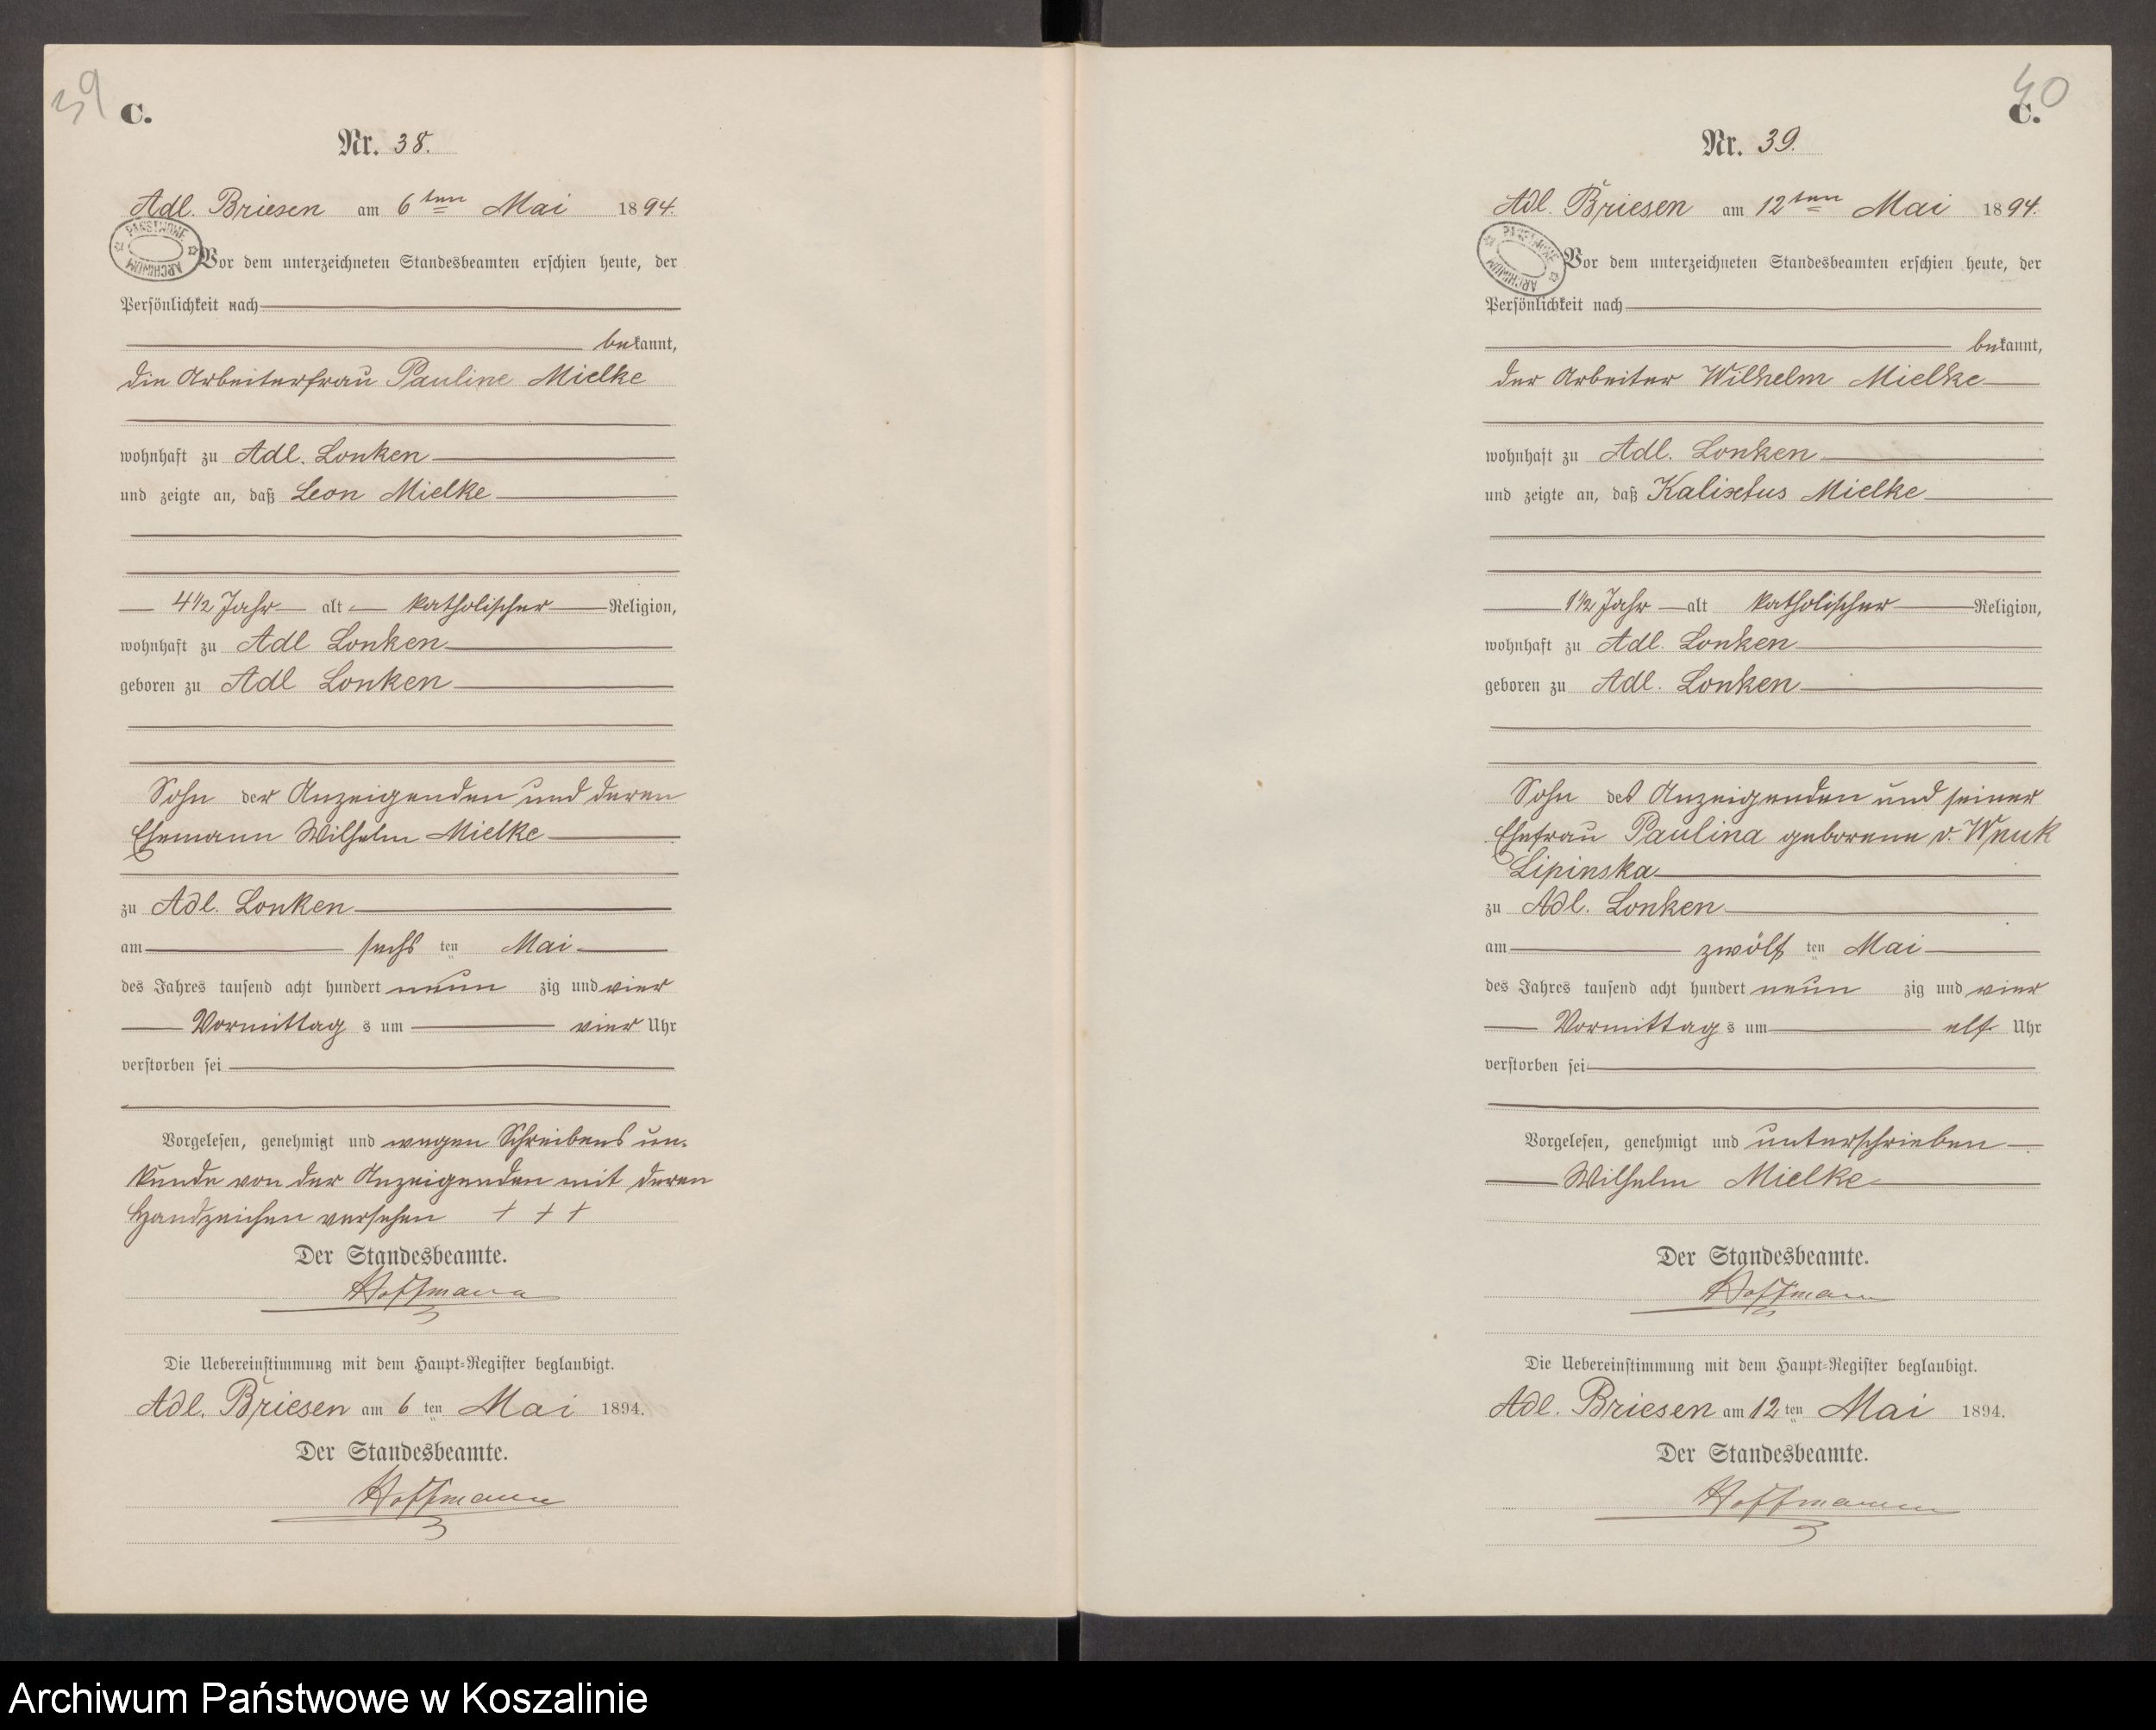 39
C.
Nr. 38.
Adl. Briesen am 6ten Mai 1894.
PAŃSTWOWE ARCHIWUM
Vor dem unterzeichneten Standesbeamten erschien heute, der
Persönlichkeit nach
bekannt,
die Arbeiterfrau Pauline Mielke
wohnhaft zu Adl. Lonken
und zeigte an, daß Leon Mielke
4 1/2 Jahr alt katholischer Religion,
wohnhaft zu Adl Lonken
geboren zu Adl Lonken
Sohn der Anzeigenden und deren
Ehemann Wilhelm Mielke
zu Adl. Lonken
am sechs ten Mai
des Jahres tausend acht hundert neun zig und vier
Vormittag s um vier Uhr
verstorben sei
Vorgelesen, genehmigt und wegen Schreibens un-
kunde von der Anzeigenden mit deren
Handzeichen versehen + + +
Der Standesbeamte.
Hoffmann
Die Uebereinstimmung mit dem Haupt-Register beglaubigt.
Adl. Briesen am 6 ten Mai 1894.
Der Standesbeamte.
Hoffmann
40
C.
Nr. 39.
Adl. Briesen am 12ten Mai 1894.
PAŃSTWOWE ARCHIWUM
Vor dem unterzeichneten Standesbeamten erschien heute, der
Persönlichkeit nach
bekannt,
der Arbeiter Wilhelm Mielke
wohnhaft zu Adl. Lonken
und zeigte an, daß Kalixtus Mielke
1 1/2 Jahr alt katholischer Religion,
wohnhaft zu Adl. Lonken
geboren zu Adl. Lonken
Sohn des Anzeigenden und seiner
Ehefrau Paulina geborene v. Wnuk
Lipinska
zu Adl. Lonken
am zwölf ten Mai
des Jahres tausend acht hundert neun zig und vier
Vormittag s um elf Uhr
verstorben sei
Vorgelesen, genehmigt und unterschrieben
Wilhelm Mielke
Der Standesbeamte.
Hoffmann
Die Uebereinstimmung mit dem Haupt-Register beglaubigt.
Adl. Briesen am 12 ten Mai 1894.
Der Standesbeamte.
Hoffmann
Archiwum Państwowe w Koszalinie